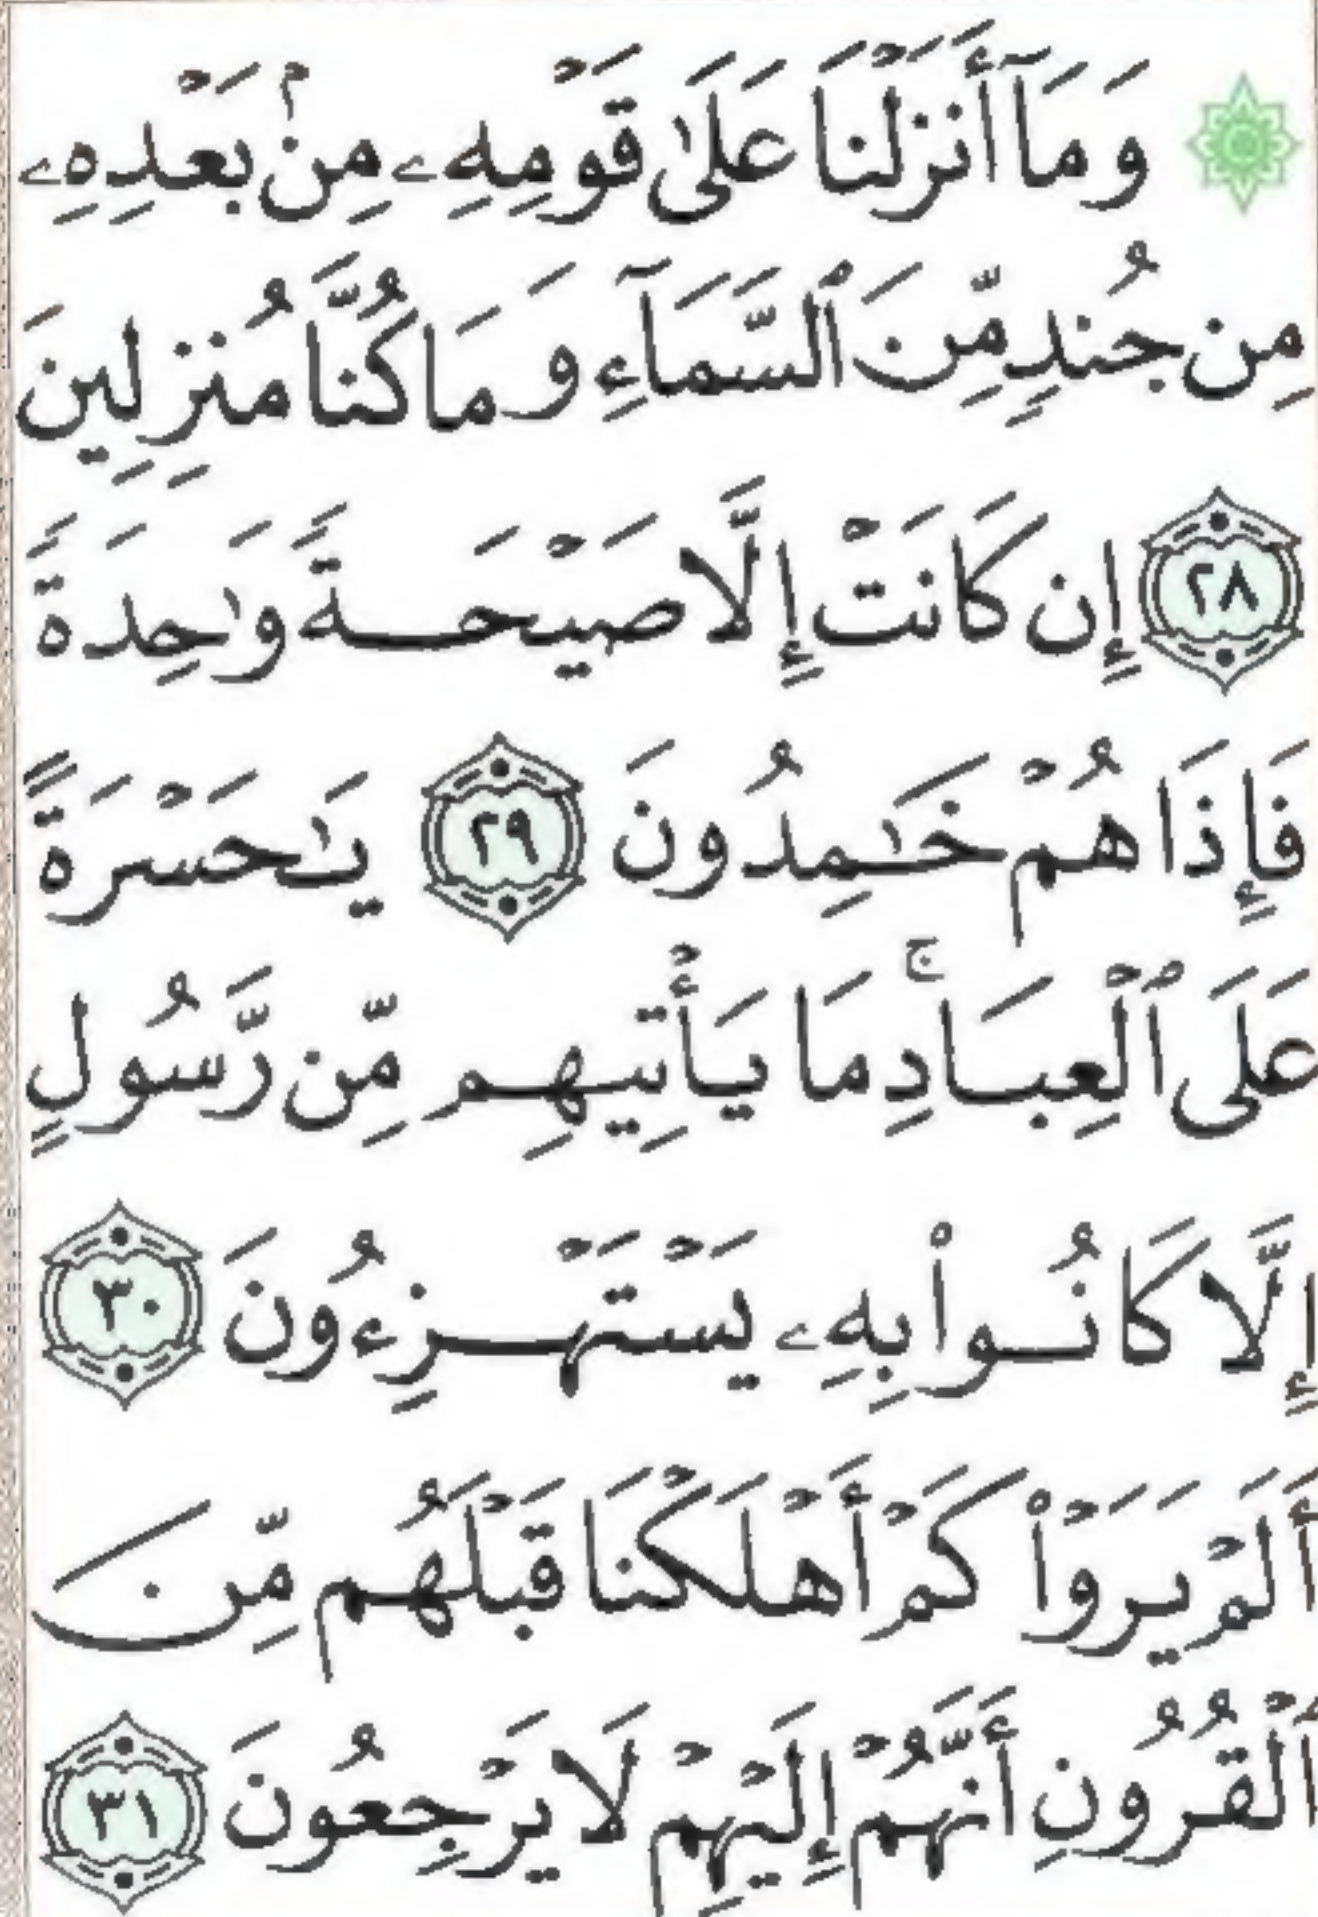 ۞ وَمَآ أَنزَلْنَا عَلَىٰ قَوْمِهِۦ مِنۢ بَعْدِهِۦ
مِن جُندٍ مِّنَ ٱلسَّمَآءِ وَمَا كُنَّا مُنزِلِينَ
٢٨ إِن كَانَتْ إِلَّا صَيْحَةً وَٰحِدَةً
فَإِذَا هُمْ خَٰمِدُونَ ٢٩ يَٰحَسْرَةً
عَلَى ٱلْعِبَادِۚ مَا يَأْتِيهِم مِّن رَّسُولٍ
إِلَّا كَانُوا۟ بِهِۦ يَسْتَهْزِءُونَ ٣٠
أَلَمْ يَرَوْا۟ كَمْ أَهْلَكْنَا قَبْلَهُم مِّنَ
ٱلْقُرُونِ أَنَّهُمْ إِلَيْهِمْ لَا يَرْجِعُونَ ٣١